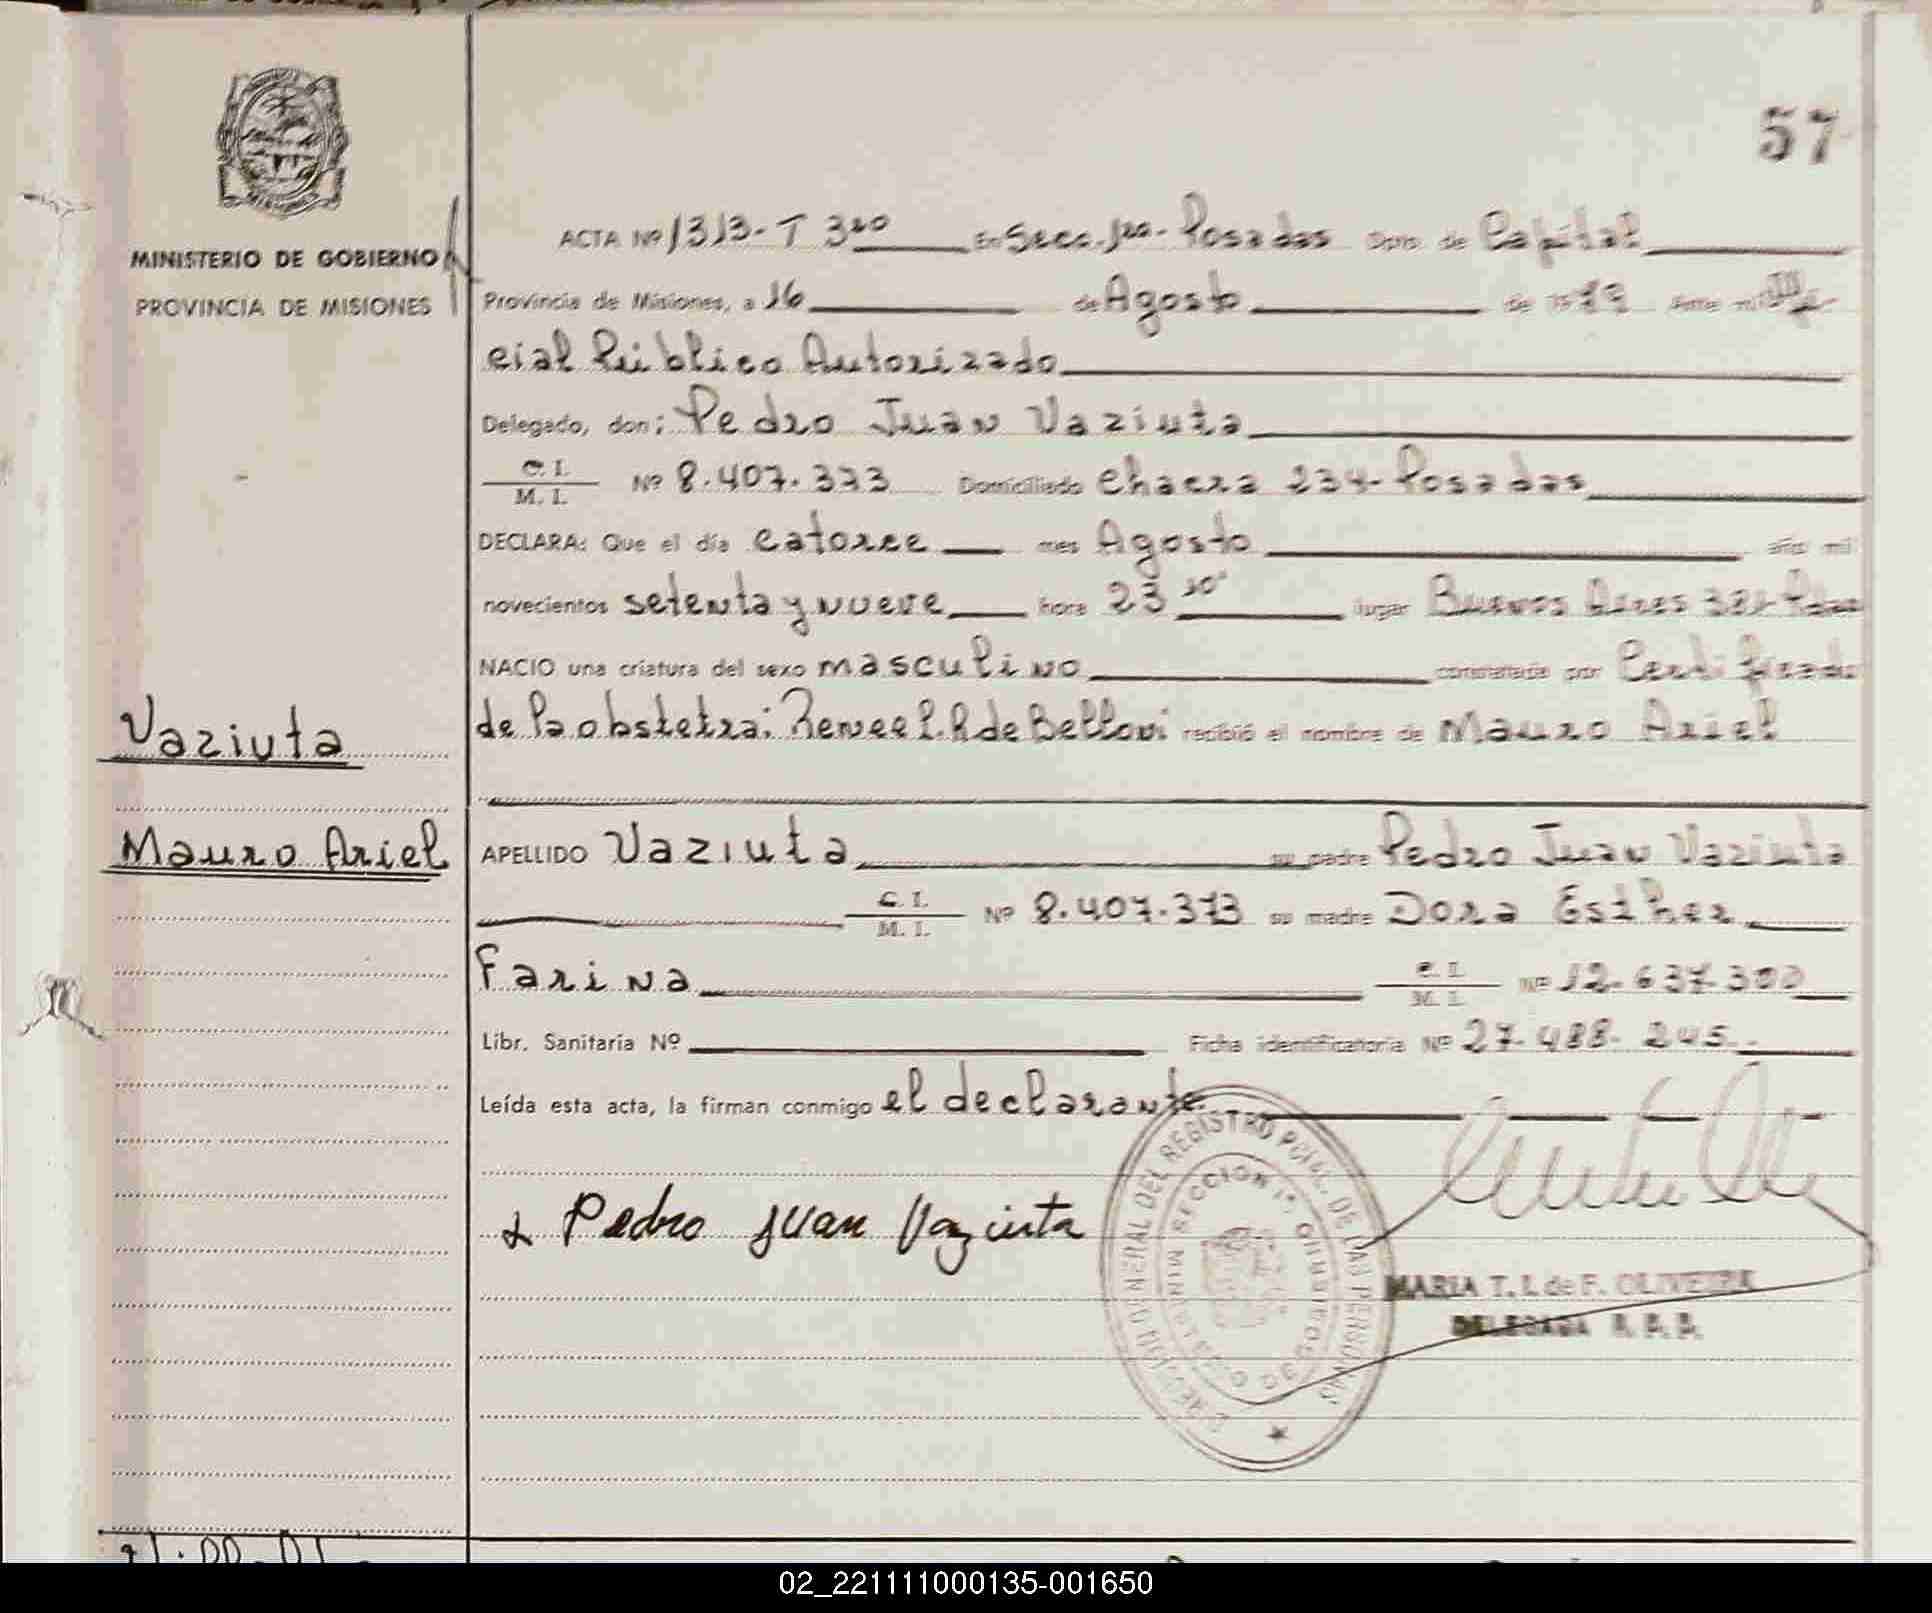 57
MINISTERIO DE GOBIERNO
PROVINCIA DE MISIONES
ACTA Nº 1313-T 3ro En Secc. 1ra - Posadas Dpto. de Capital
Provincia de Misiones, a 16 de Agosto de 1979 Ante mi Ofi
cial Público Autorizado
Delegado, don; Pedro Juan Vaziuta
C. I. / M. I. Nº 8.407.373 Domiciliado Chacra 234-Posadas
DECLARA: Que el día catorce mes Agosto año mil
novecientos setenta y nueve hora 23 lugar Buenos Aires
NACIO una criatura del sexo masculino constatada por Certificado
de la obstetra: Renee L. R de Belloni recibió el nombre de Mauro Ariel
Vaziuta
Mauro Ariel
APELLIDO Vaziuta su padre Pedro Juan Vaziuta
C. I. / M. I. Nº 8.407.373 su madre Dora Esther
Farina C. I. / M. I. Nº 12.637.300
Libr. Sanitaria Nº Ficha identificatoria Nº 27.488.245
Leída esta acta, la firman conmigo el declarante.
Pedro Juan Vaziuta
DIRECCION GENERAL DEL REGISTRO PCIAL. DE LAS PERSONAS
SECCION 1ª
MARIA T. I. de F. OLIVEIRA
DELEGADA R. P. P.
02_221111000135-001650